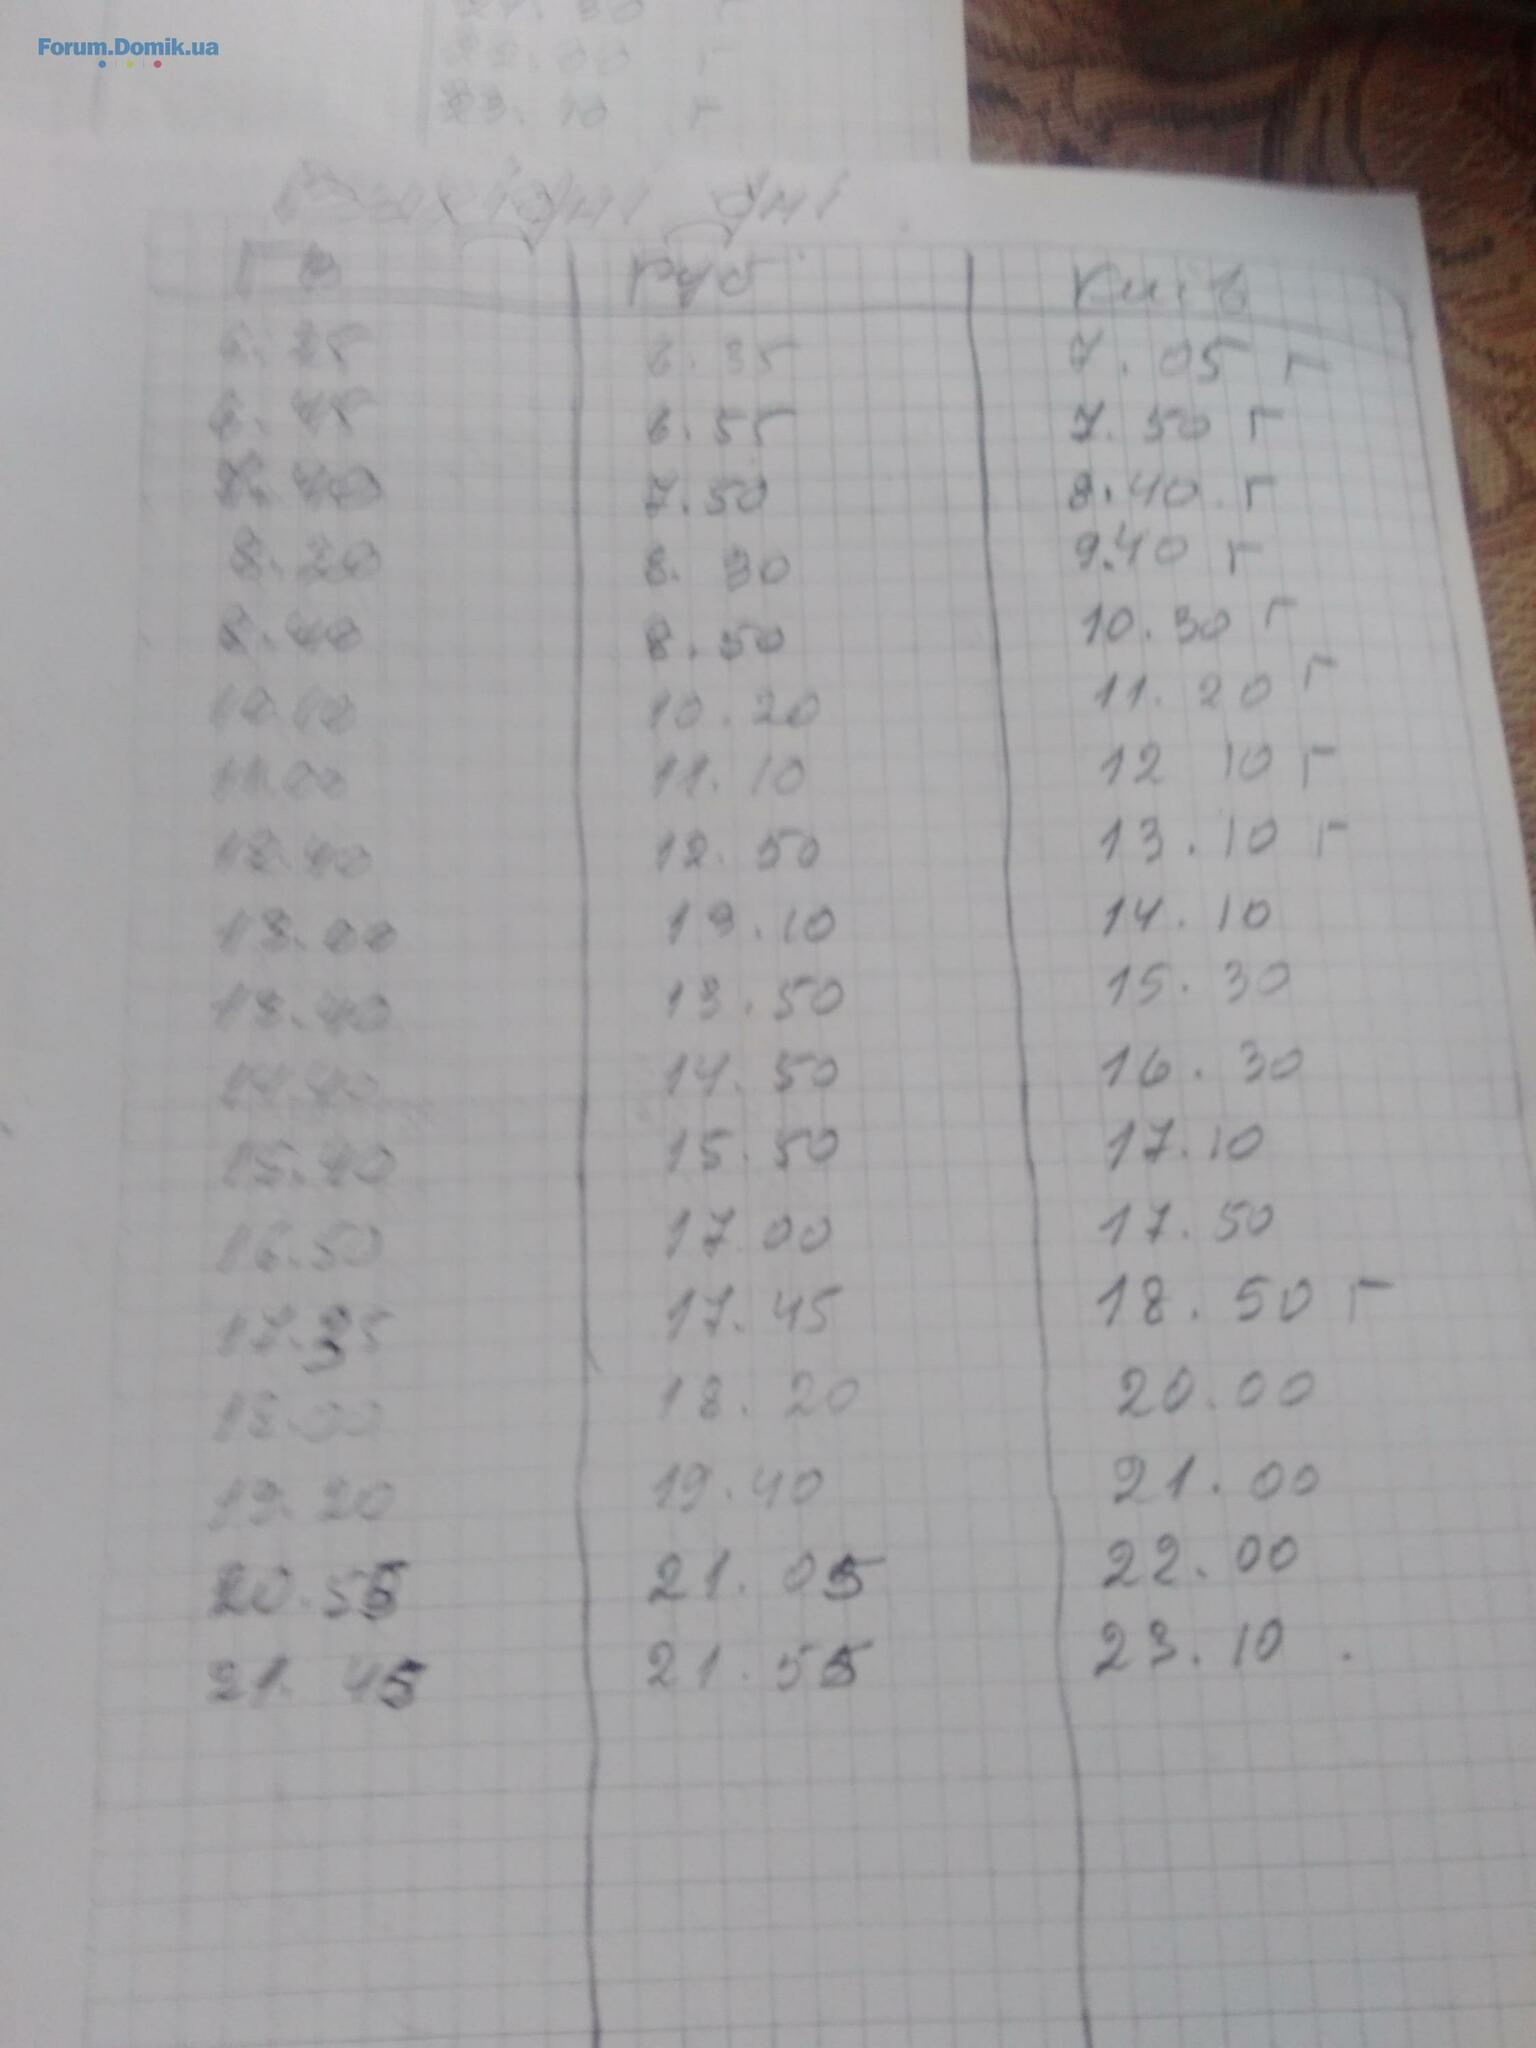 Forum.Domik.ua
22.00 г
23.10 г
Вихідні дні
ГВ Руб Київ
6.25 6.35 7.05 г
6.45 6.55 7.50 г
7.40 7.50 8.40 г
8.20 8.30 9.40 г
8.40 8.50 10.30 г
10.10 10.20 11.20 г
11.00 11.10 12 10 г
12.40 12.50 13.10 г
13.00 13.10 14.10
13.40 13.50 15.30
14.40 14.50 16.30
15.40 15.50 17.10
16.50 17 00 17.50
17.35 17.45 18.50 г
18.00 18.20 20.00
19.20 19.40 21.00
20.55 21.05 22.00
21.45 21.55 23.10.